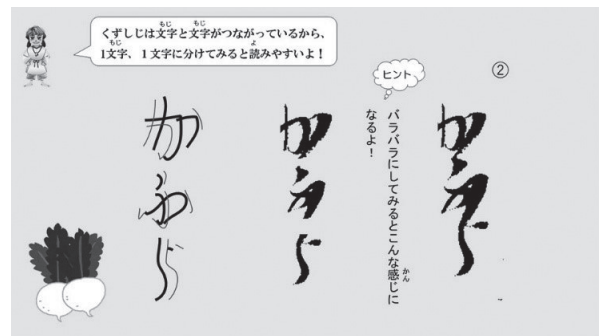 もじ もじ
くずしじは文字と文字がつながっているから、
もじ よ
1文字、1文字に分けてみると読みやすいよ！
②
かふら
ヒント
バラバラにしてみるとこんな感じに
かん
なるよ！
かふら
かふら